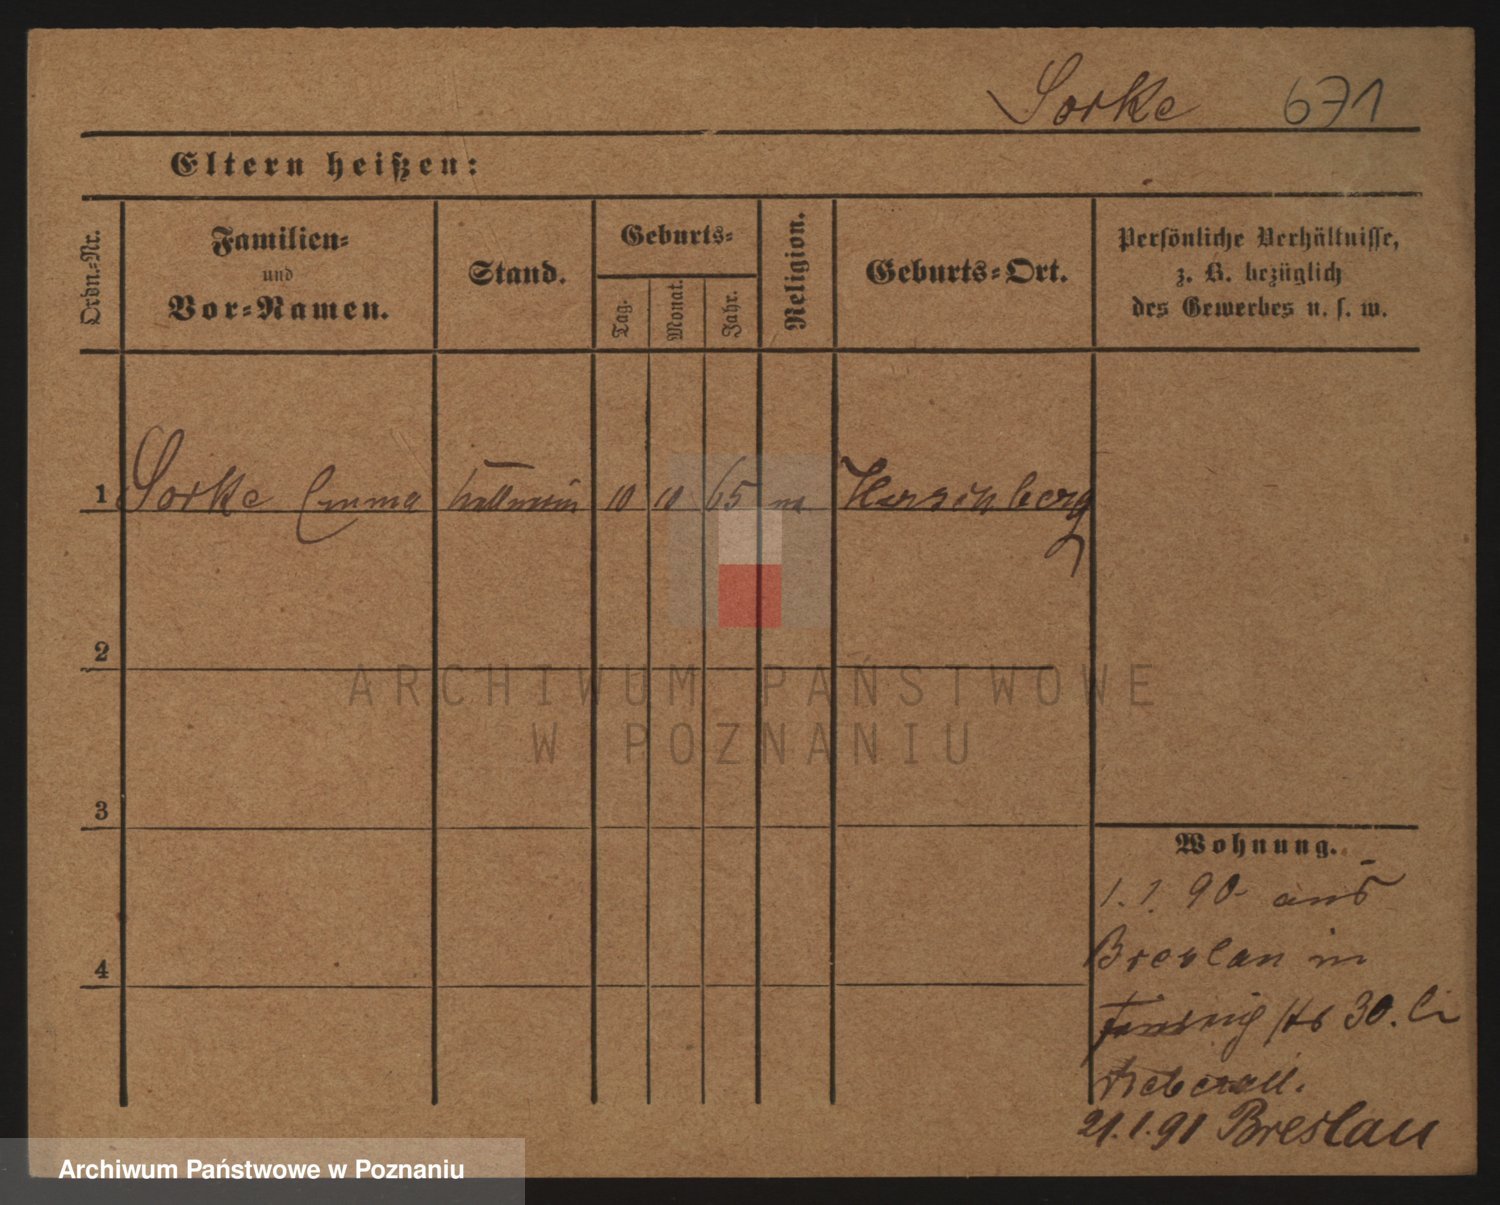 Sorke 671
Eltern heißen:
Ordn.-Nr.
Familien-
und
Vor-Namen.
Stand.
Geburts-
Tag.
Monat.
Jahr.
Religion.
Geburts-Ort.
Persönliche Verhältnisse,
z. B. bezüglich
des Gewerbes u. s. w.
1 Sorke Emma 10 10 65
2
3
4
Wohnung.
1. 1. 90 aus
Breslau in
30.
21.1.91 Breslau
ARCHIWUM PAŃSTWOWE
W POZNANIU
Archiwum Państwowe w Poznaniu